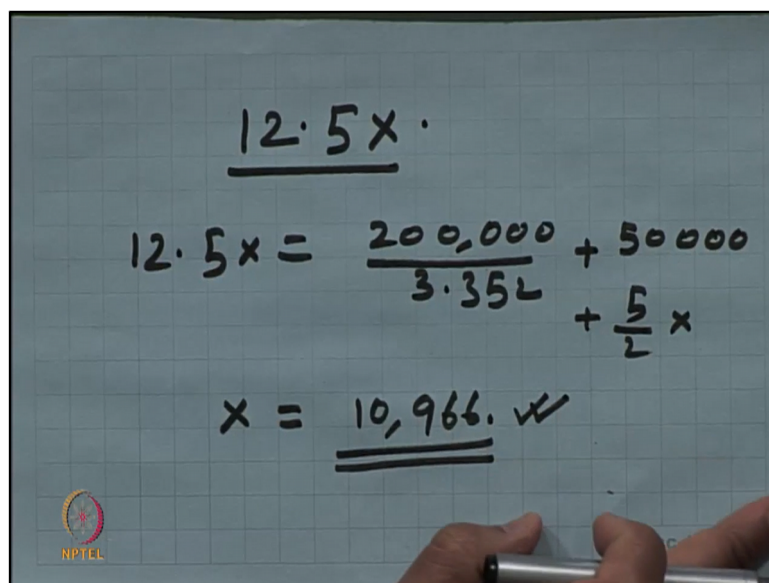 12.5x.
12.5x = 200,000 / 3.352 + 50000
+ 5/2 x
x = 10,966.
NPTEL